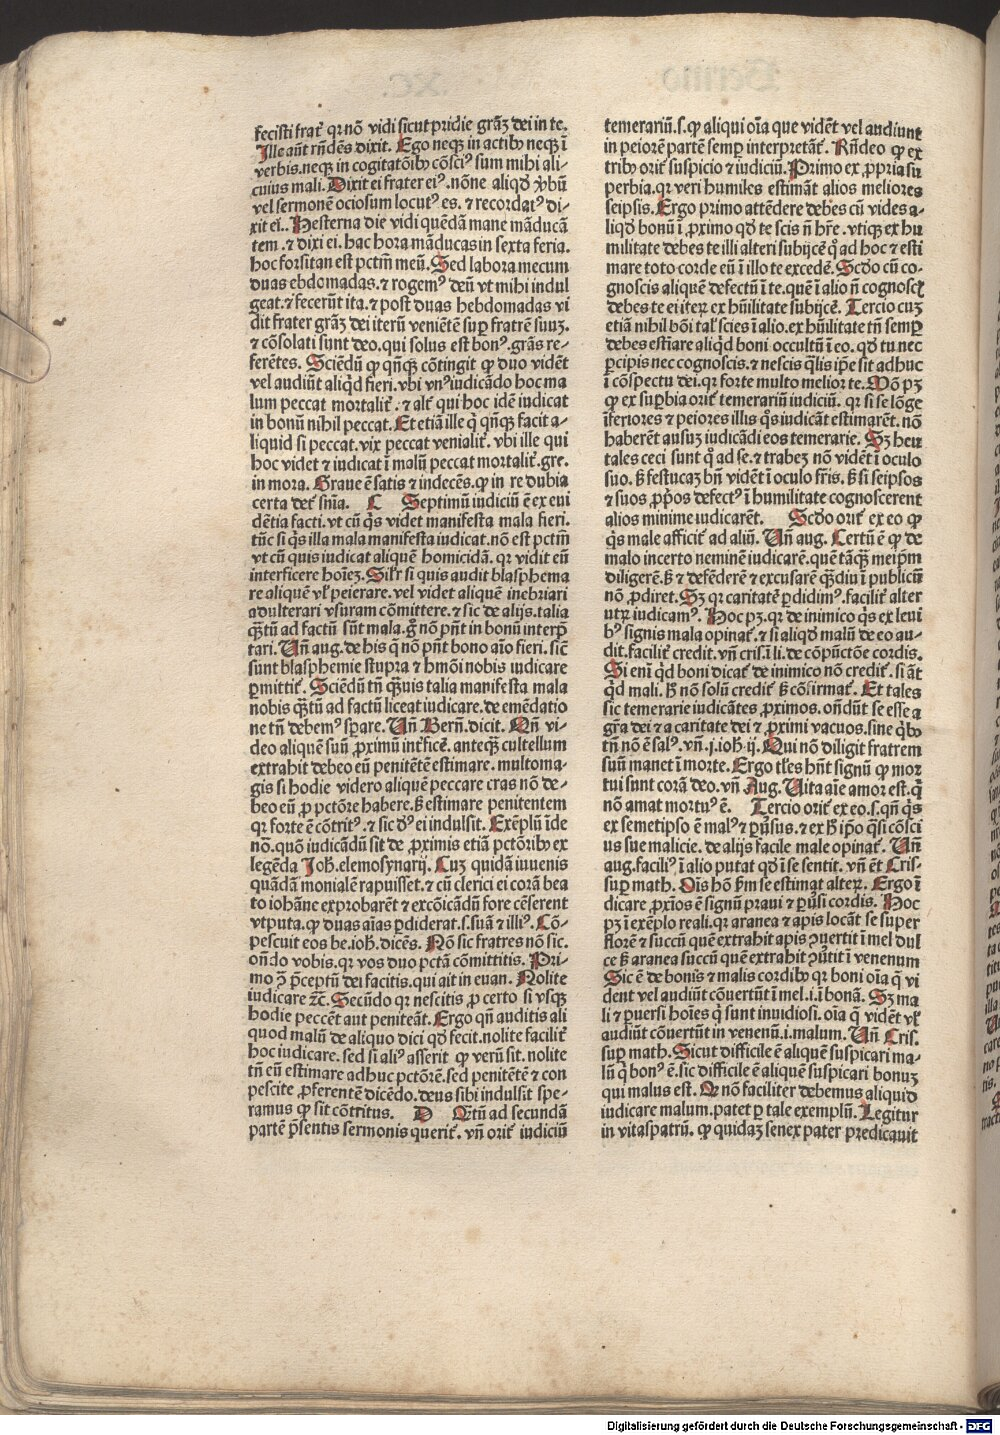 fecisti frat̛ qꝛ nō vidi sicut pridie grāꝫ dei in te.
Ille aūt rn̄dēs dixit. Ego neqꝫ in actibꝰ neqꝫ ī
verbis.neqꝫ in cogitatōibꝰ cōsciꝰ sum mihi ali-
cuius mali. Dixit ei frater eiꝰ.nōne aliqđ v̓bū
vel sermonē ociosum locutꝰ es. ⁊ recordatꝰ di-
xit ei.. Hesterna die vidi quēdā mane māducā
tem .⁊ dixi ei. hac hora māducas in sexta feria.
hoc forsitan est pctm̄ meū. Sed labora mecum
duas ebdomadas.⁊ rogemꝰ deū vt mihi indul
geat.⁊ fecerūt ita.⁊ post duas hebdomadas vi
dit frater grāꝫ dei iterū veniētē suꝑ fratrē suuꝫ.
⁊ cōsolati sunt deo.qui solus est bonꝰ.grās re-
ferētes. Sciēdū ꝙ qn̄qꝫ cōtingit ꝙ duo vidēt
vel audiūt aliq̇d fieri.vbi vnꝰ iudicādo hoc ma
lum peccat mortalit̛ .⁊ alt̛ qui hoc idē iudicat
in bonū nihil peccat. Et etiā ille q̇ qn̄qꝫ facit a-
liquid si peccat.vix peccat venialit̛. vbi ille qui
hoc videt ⁊ iudicat ī malū peccat mortalit̛.gre.
in mora. Graue ē satis ⁊ indecēs.ꝙ in re dubia
certa det̛ sn̄ia. C Septimū iudiciū ē ex eui
dētia facti.vt cū q̇s videt manifesta mala fieri.
tūc si q̇s illa mala manifesta iudicat.nō est pctm̄
vt cū quis iudicat aliquē homicidā. qꝛ vidit eū
interficere hoīeꝫ. Silr̄ si quis audit blasphema
re aliquē vl̓ peierare. vel videt aliquē inebriari
adulterari vsuram cōmittere.⁊ sic de alijs.talia
qꝫtū ad factū sūt mala.g̊ nō pn̄t in bonū interp̄
tari. Un̄ aug.de his q̄ nō pn̄t bono aīo fieri. sic̄
sunt blasphemie stupra ⁊ hmōi nobis iudicare
ꝑmittit̛. Sciēdū tn̄ qꝫuis talia manifesta mala
nobis qꝫtū ad factū liceat iudicare.de emēdatio
ne tn̄ debemꝰ sperare. Un̄ Bern̄.dicit. Qn̄ vi-
deo aliquē suū ꝓximū int̛ficē. anteqꝫ cultellum
extrahit debeo eū penitētē estimare. multoma-
gis si hodie videro aliquē peccare cras nō de-
beo eū ꝓ pctōre habere.sꝫ estimare penitentem
qꝛ forte ē cōtritꝰ.⁊ sic dꝰ ei indulsit. Exēplū īde
nō.quō iudicādū sit de ꝓximis etiā pctōribꝰ ex
legēda Joh̄.elemosynarij. Cuꝫ quidā iuuenis
quādā monialē rapuisset.⁊ cū clerici ei corā bea
to iohāne exprobarēt ⁊ excōicādū fore cēserent
vtputa.ꝙ duas aīas ꝑdiderat.s.suā ⁊ illiꝰ. Cō-
pescuit eos be.ioh̄.dicēs. Nō sic fratres nō sic.
on̄do vobis.qꝛ vos duo pctā cōmittitis. Pri-
mo ꝯ p̄ceptū dei facitis.qui ait in euan. Nolite
iudicare ⁊c̄. Secūdo qꝛ nescitis ꝓ certo si vsqꝫ
hodie peccēt aut peniteāt. Ergo qn̄ auditis ali
quod malū de aliquo dici qđ fecit.nolite facilit̛
hoc iudicare. sed si aliꝰ asserit ꝙ verū sit. nolite
tn̄ eū estimare adhuc pctōrē.sed penitētē ⁊ con
pescite ꝓferentē dicēdo.deus sibi indulsit spe-
ramus ꝙ sit cōtritus. D Qꝫtū ad secundā
partē p̄sentis sermonis querit̛. vn̄ orit̛ iudiciū
temerariū.s.ꝙ aliqui oīa que vidēt vel audiunt
in peiorē partē semꝑ interpretāt̛. Rn̄deo ꝙ ex
tribꝰ orit̛ suspicio ⁊ iudiciū. Primo ex ꝓpria su
perbia.qꝛ veri humiles estimāt alios meliores
seipsis. Ergo primo attēdere debes cū vides a-
liqđ bonū ī ꝓximo qđ te scis n̄ hr̄e .vtiqꝫ ex hu
militate debes te illi alteri subijcē qꝰ ad hoc ⁊ esti
mare toto corde eū ī illo te excedē. Scđo cū co-
gnoscis aliquē defectū ī te.quē ī alio n̄ cognoscꝭ
debes te ei iteꝝ ex hūilitate subijcē. Tercio cuꝫ
etiā nihil bōi talꝭ scies ī alio.ex hūilitate tn̄ semꝑ
debes estīare aliq̇d boni occultū ī eo. qđ tu nec
ꝑcipis nec cognoscis.⁊ nescis q̄lis ip̄e sit adhuc
ī cōspectu dei.qꝛ forte multo melior te. Nō pꝫ
ꝙ ex suꝑbia orit̛ temerariū iudiciū. qꝛ si se lōge
īferiores ⁊ peiores illis q̇s iudicāt estimarēt. nō
haberēt ausuꝫ iudicādi eos temerarie. Sꝫ heu
tales ceci sunt qꝰ ad se.⁊ trabeꝫ nō vidēt ī oculo
suo. sꝫ festucaꝫ bn̄ vidēt ī oculo fr̄is. sꝫ si seipsos
⁊ suos ꝓp̄os defectꝰ ī humilitate cognoscerent
alios minime iudicarēt. Scđo orit̛ ex eo ꝙ
q̇s male afficit̛ ad aliū. Un̄ aug. Certū ē ꝙ de
malo incerto neminē iudicarē.quē tāqꝫ meip̄m
diligerē.sꝫ ⁊ defēderē ⁊ excusarē qꝫdiu ī publicū
nō ꝓdiret. Sꝫ qꝛ caritatē ꝑdidimꝰ.facilit̛ alter
utꝝ iudicamꝰ. Hoc pꝫ.qꝛ de inimico q̇s ex leui
bꝰ signis mala opinat̛.⁊ si aliqđ malū de eo au-
dit.facilit̛ credit. vn̄ cris.ī li.de cōpūctōe cordis.
Si enī q̇d boni dicat̛ de inimico nō credit̛. si āt
q̇d mali. h̓ nō solū credit̛ sꝫ cōfirmat̛. Et tales
sic temerarie iudicātes ꝓximos. on̄dūt se esse a
gr̄a dei ⁊ a caritate dei ⁊ ꝓximi vacuos.sine q̇bꝰ
tn̄ nō ē salꝰ. vn̄ .j.ioh̄.ij. Qui nō diligit fratrem
suū manet ī morte. Ergo tl̓es hn̄t signū ꝙ mor
tui sunt corā deo.vn̄ Aug. Uita aīe amor est.q̇
nō amat mortuꝰ ē. Tercio orit̛ ex eo.s.qn̄ q̇s
ex semetipso ē malꝰ ⁊ ꝑuersus.⁊ ex h̓ ip̄o q̄si cōsci
us sue malicie. de alijs facile male opinat̛. Un̄
aug.faciliꝰ ī alio putat qđ ī se sentit. vn̄ ēt Cris-
suꝑ math. Oīs hō sm̄ se estimat alteꝝ. Ergo ī
dicare ꝓxīos ē signū praui ⁊ ꝑuersi cordis. Hoc
pꝫ ī exēplo reali.qꝛ aranea ⁊ apis locāt se super
florē ⁊ succū quē extrahit apis ꝯuertit ī mel dul
ce sꝫ aranea succū quē extrahit ꝯūtit ī venenum
Sic ē de bonis ⁊ malis cordibꝰ qꝛ boni oīa q̄ vi
dent vel audiūt cōuertūt ī mel.i.ī bonā. Sꝫ ma
li ⁊ ꝑuersi hoīes q̇ sunt inuidiosi.oīa q̄ vidēt vl̓
audiūt cōuertūt in venenū.i.malum. Un̄ Cris.
suꝑ math. Sicut difficile ē aliquē suspicari ma-
lū q̇ bonꝰ ē.sic difficile ē aliquē suspicari bonuꝫ
qui malus est. Qꝫ nō faciliter debemus aliquid
iudicare malum.patet ꝑ tale exemplū. Legitur
in vitaspatrū. ꝙ quidaꝫ senex pater predicauit
Digitalisierung gefördert durch die Deutsche Forschungsgemeinschaft - DFG